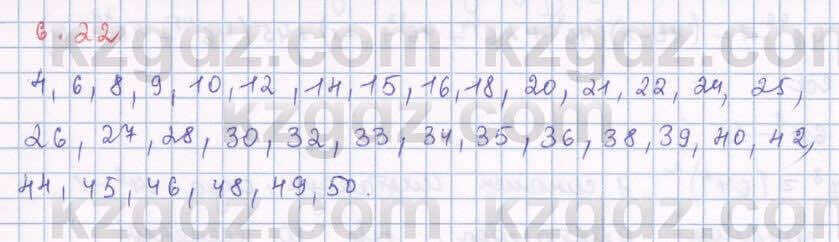 6.22
4, 6, 8, 9, 10, 12, 14, 15, 16, 18, 20, 21, 22, 24, 25,
26, 27, 28, 30, 32, 33, 34, 35, 36, 38, 39, 40, 42,
44, 45, 46, 48, 49, 50.
kzgdz.com kzgdz.com
kzgdz.com
kzgdz.com kzgdz.com